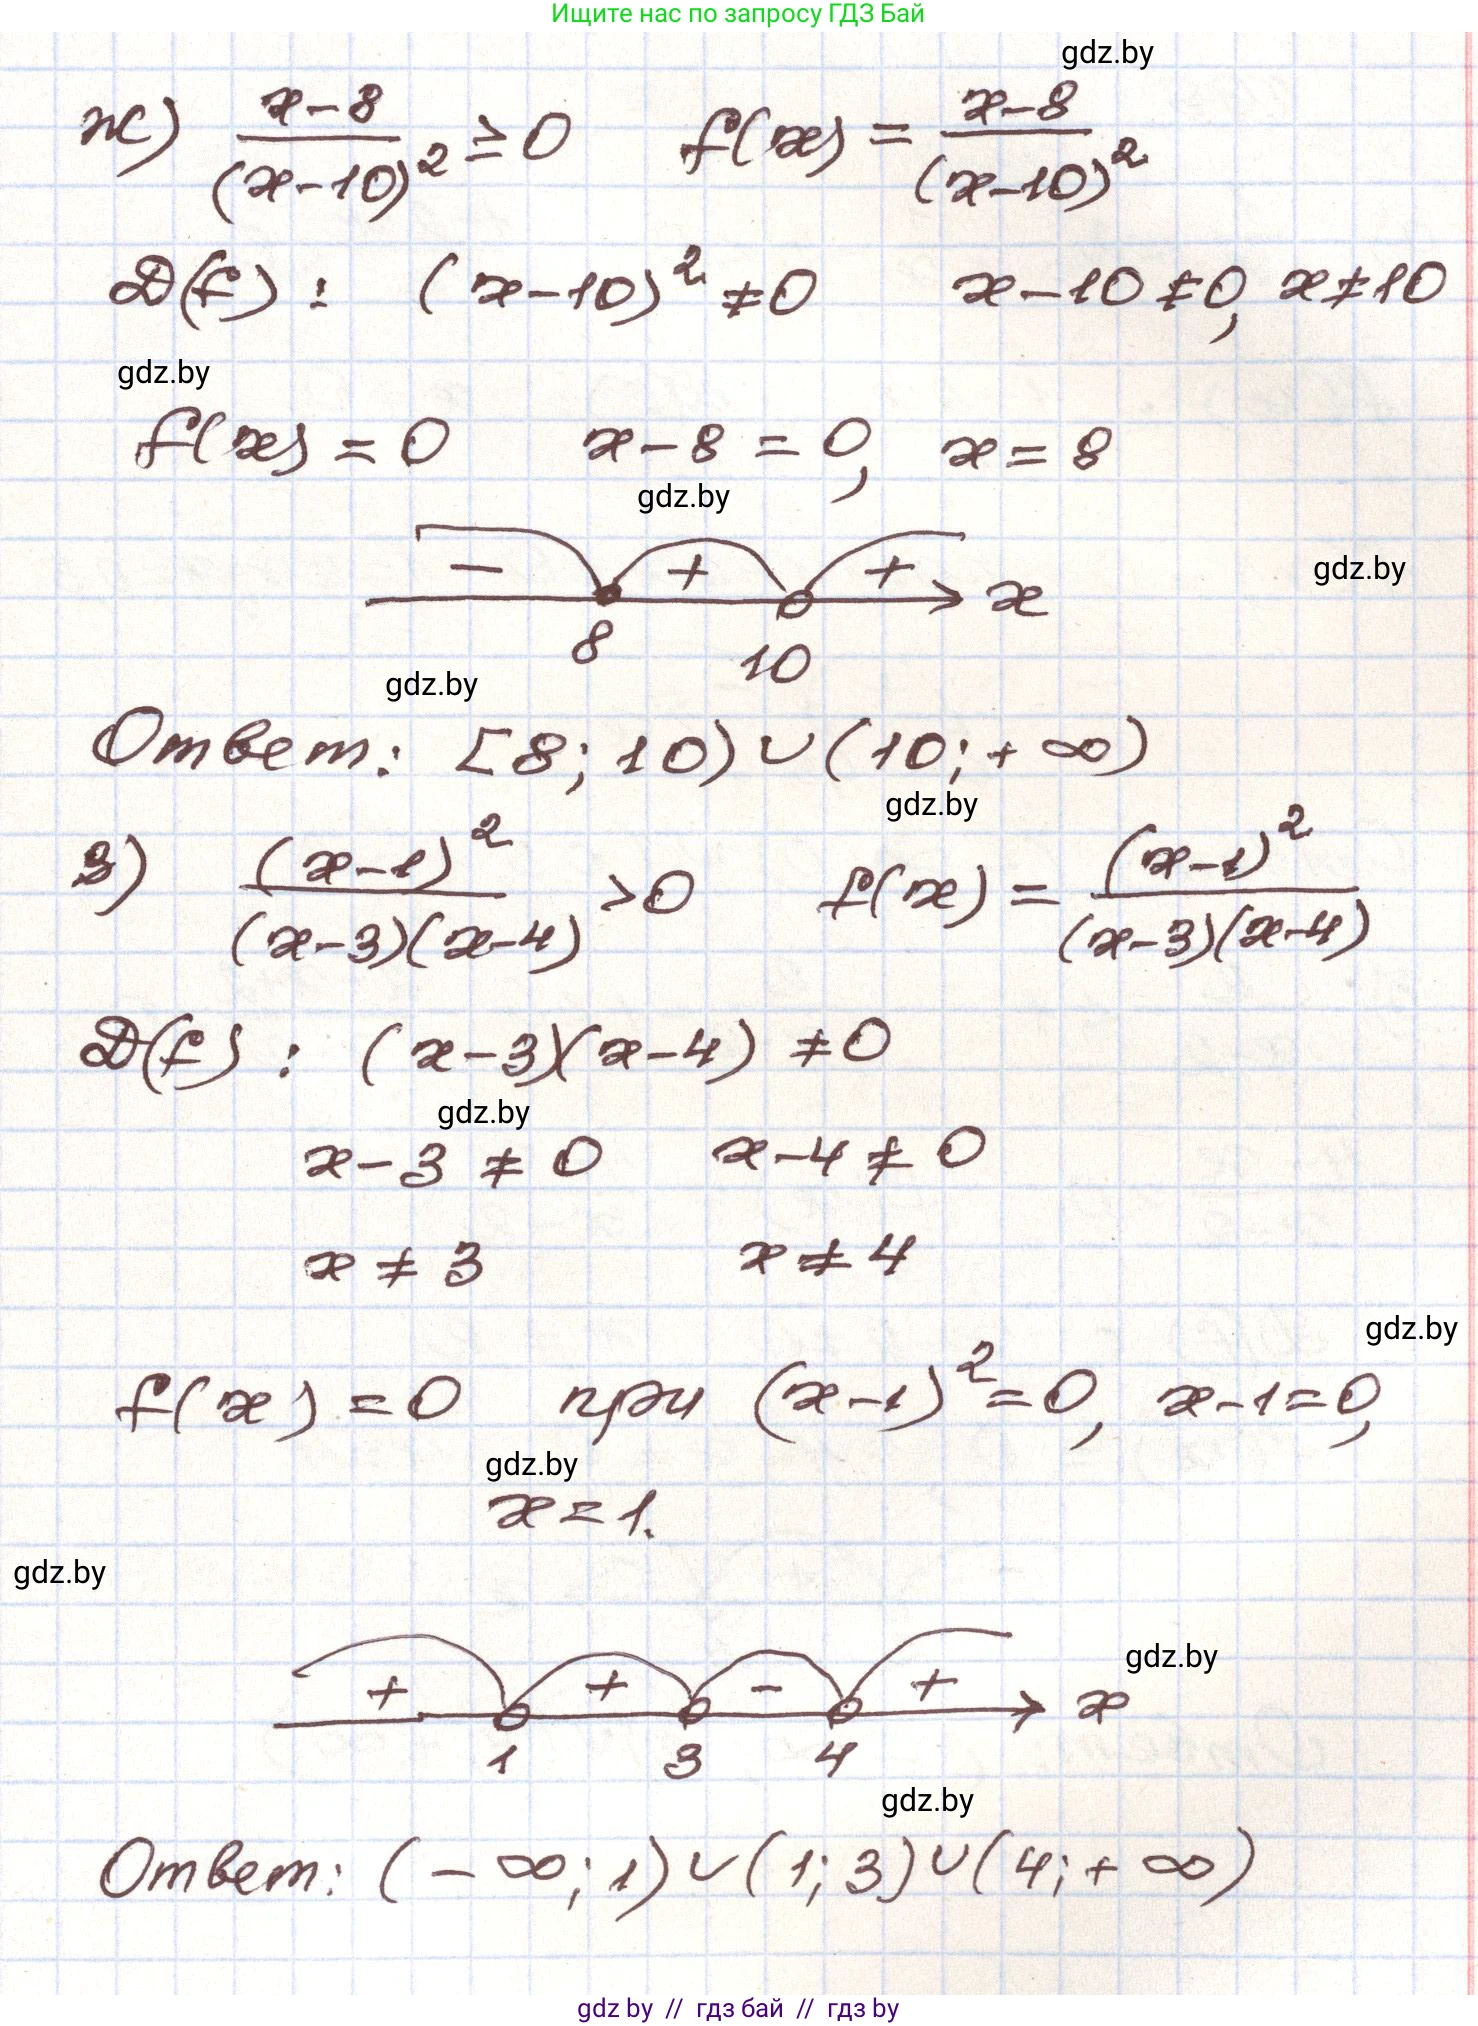 Ищите нас по запросу ГДЗ Бай
gdz.by
ж) (x-8)/(x-10)² ≥ 0 f(x) = (x-8)/(x-10)²
D(f): (x-10)² ≠ 0 x-10 ≠ 0, x ≠ 10
gdz.by
f(x) = 0 x-8 = 0, x = 8
gdz.by
- + + x
gdz.by
8 10
gdz.by
Ответ: [8; 10) ∪ (10; +∞)
gdz.by
з) (x-1)²/(x-3)(x-4) > 0 f(x) = (x-1)²/(x-3)(x-4)
D(f): (x-3)(x-4) ≠ 0
gdz.by
x-3 ≠ 0 x-4 ≠ 0
x ≠ 3 x ≠ 4
gdz.by
f(x) = 0 при (x-1)² = 0, x-1 = 0,
gdz.by
x = 1.
gdz.by
gdz.by
+ + - + x
1 3 4
gdz.by
Ответ: (-∞; 1) ∪ (1; 3) ∪ (4; +∞)
gdz by // гдз бай // гдз by